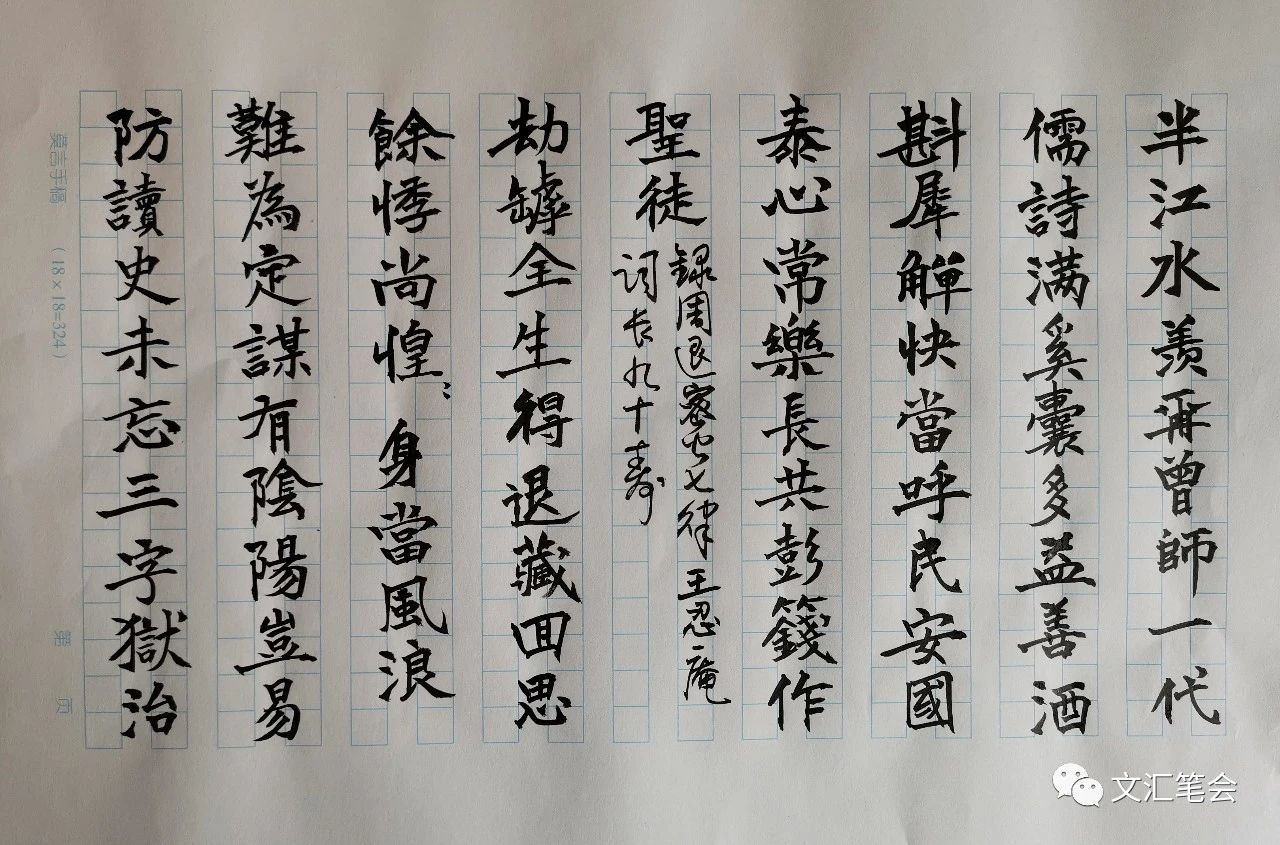 半江水羨再曾師一代
儒詩满奚囊多益善酒
斟犀觶快當呼民安國
泰心常樂長共彭籛作
聖徒
録周退密公七律王忍庵
词长九十寿
劫罅全生得退藏回思
餘悸尚惶〻身當風浪
難為定謀有陰陽豈易
防讀史未忘三字獄治
莫言手稿
(18×18=324)
第
页
文汇笔会